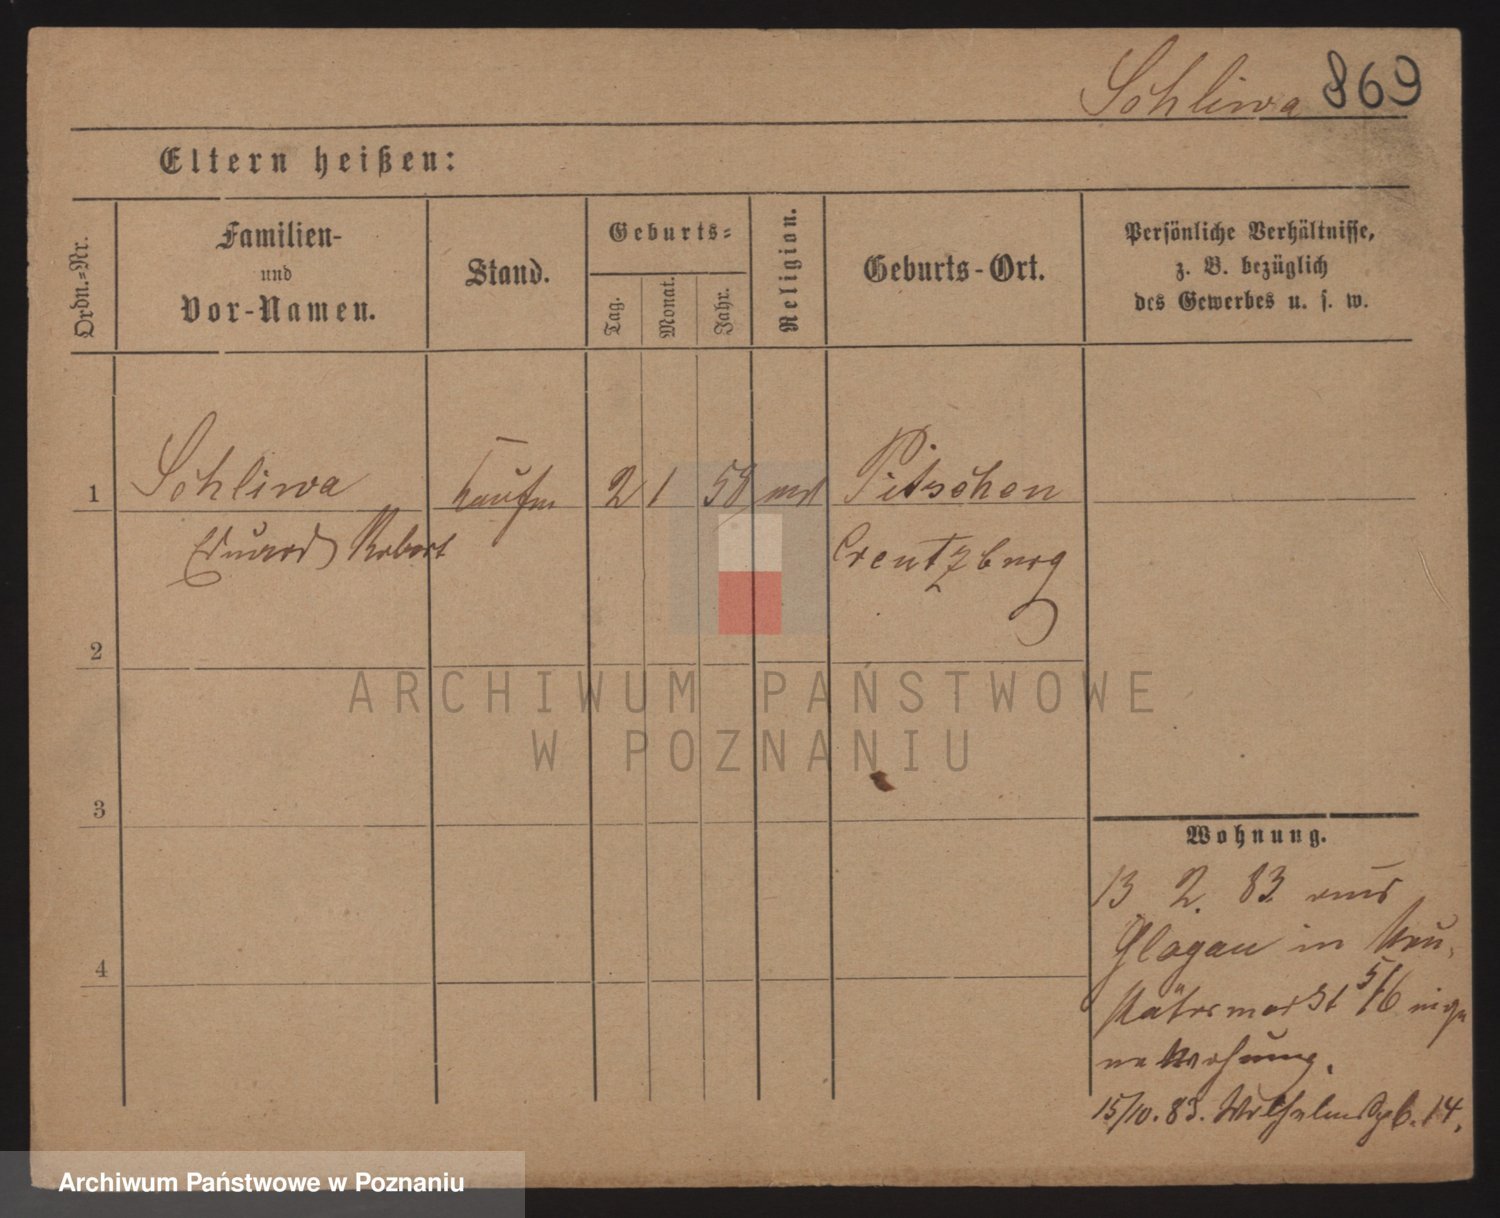 Schliwa 869
Eltern heißen:
Ordn.-Nr.
Familien-
und
Vor-Namen.
Stand.
Geburts-
Tag.
Monat.
Jahr.
Religion.
Geburts-Ort.
Persönliche Verhältnisse,
z. B. bezüglich
des Gewerbes u. s. w.
1 Schliwa Kaufm 2 1 58 Pitschen
Eduard Robert Creutzburg
2
3
4
Wohnung.
13 2. 83 aus
Glogau in Neu-
städtsmarkt 5/6
Wohnung.
15/10. 83. 14.
ARCHIWUM PAŃSTWOWE
W POZNANIU
Archiwum Państwowe w Poznaniu